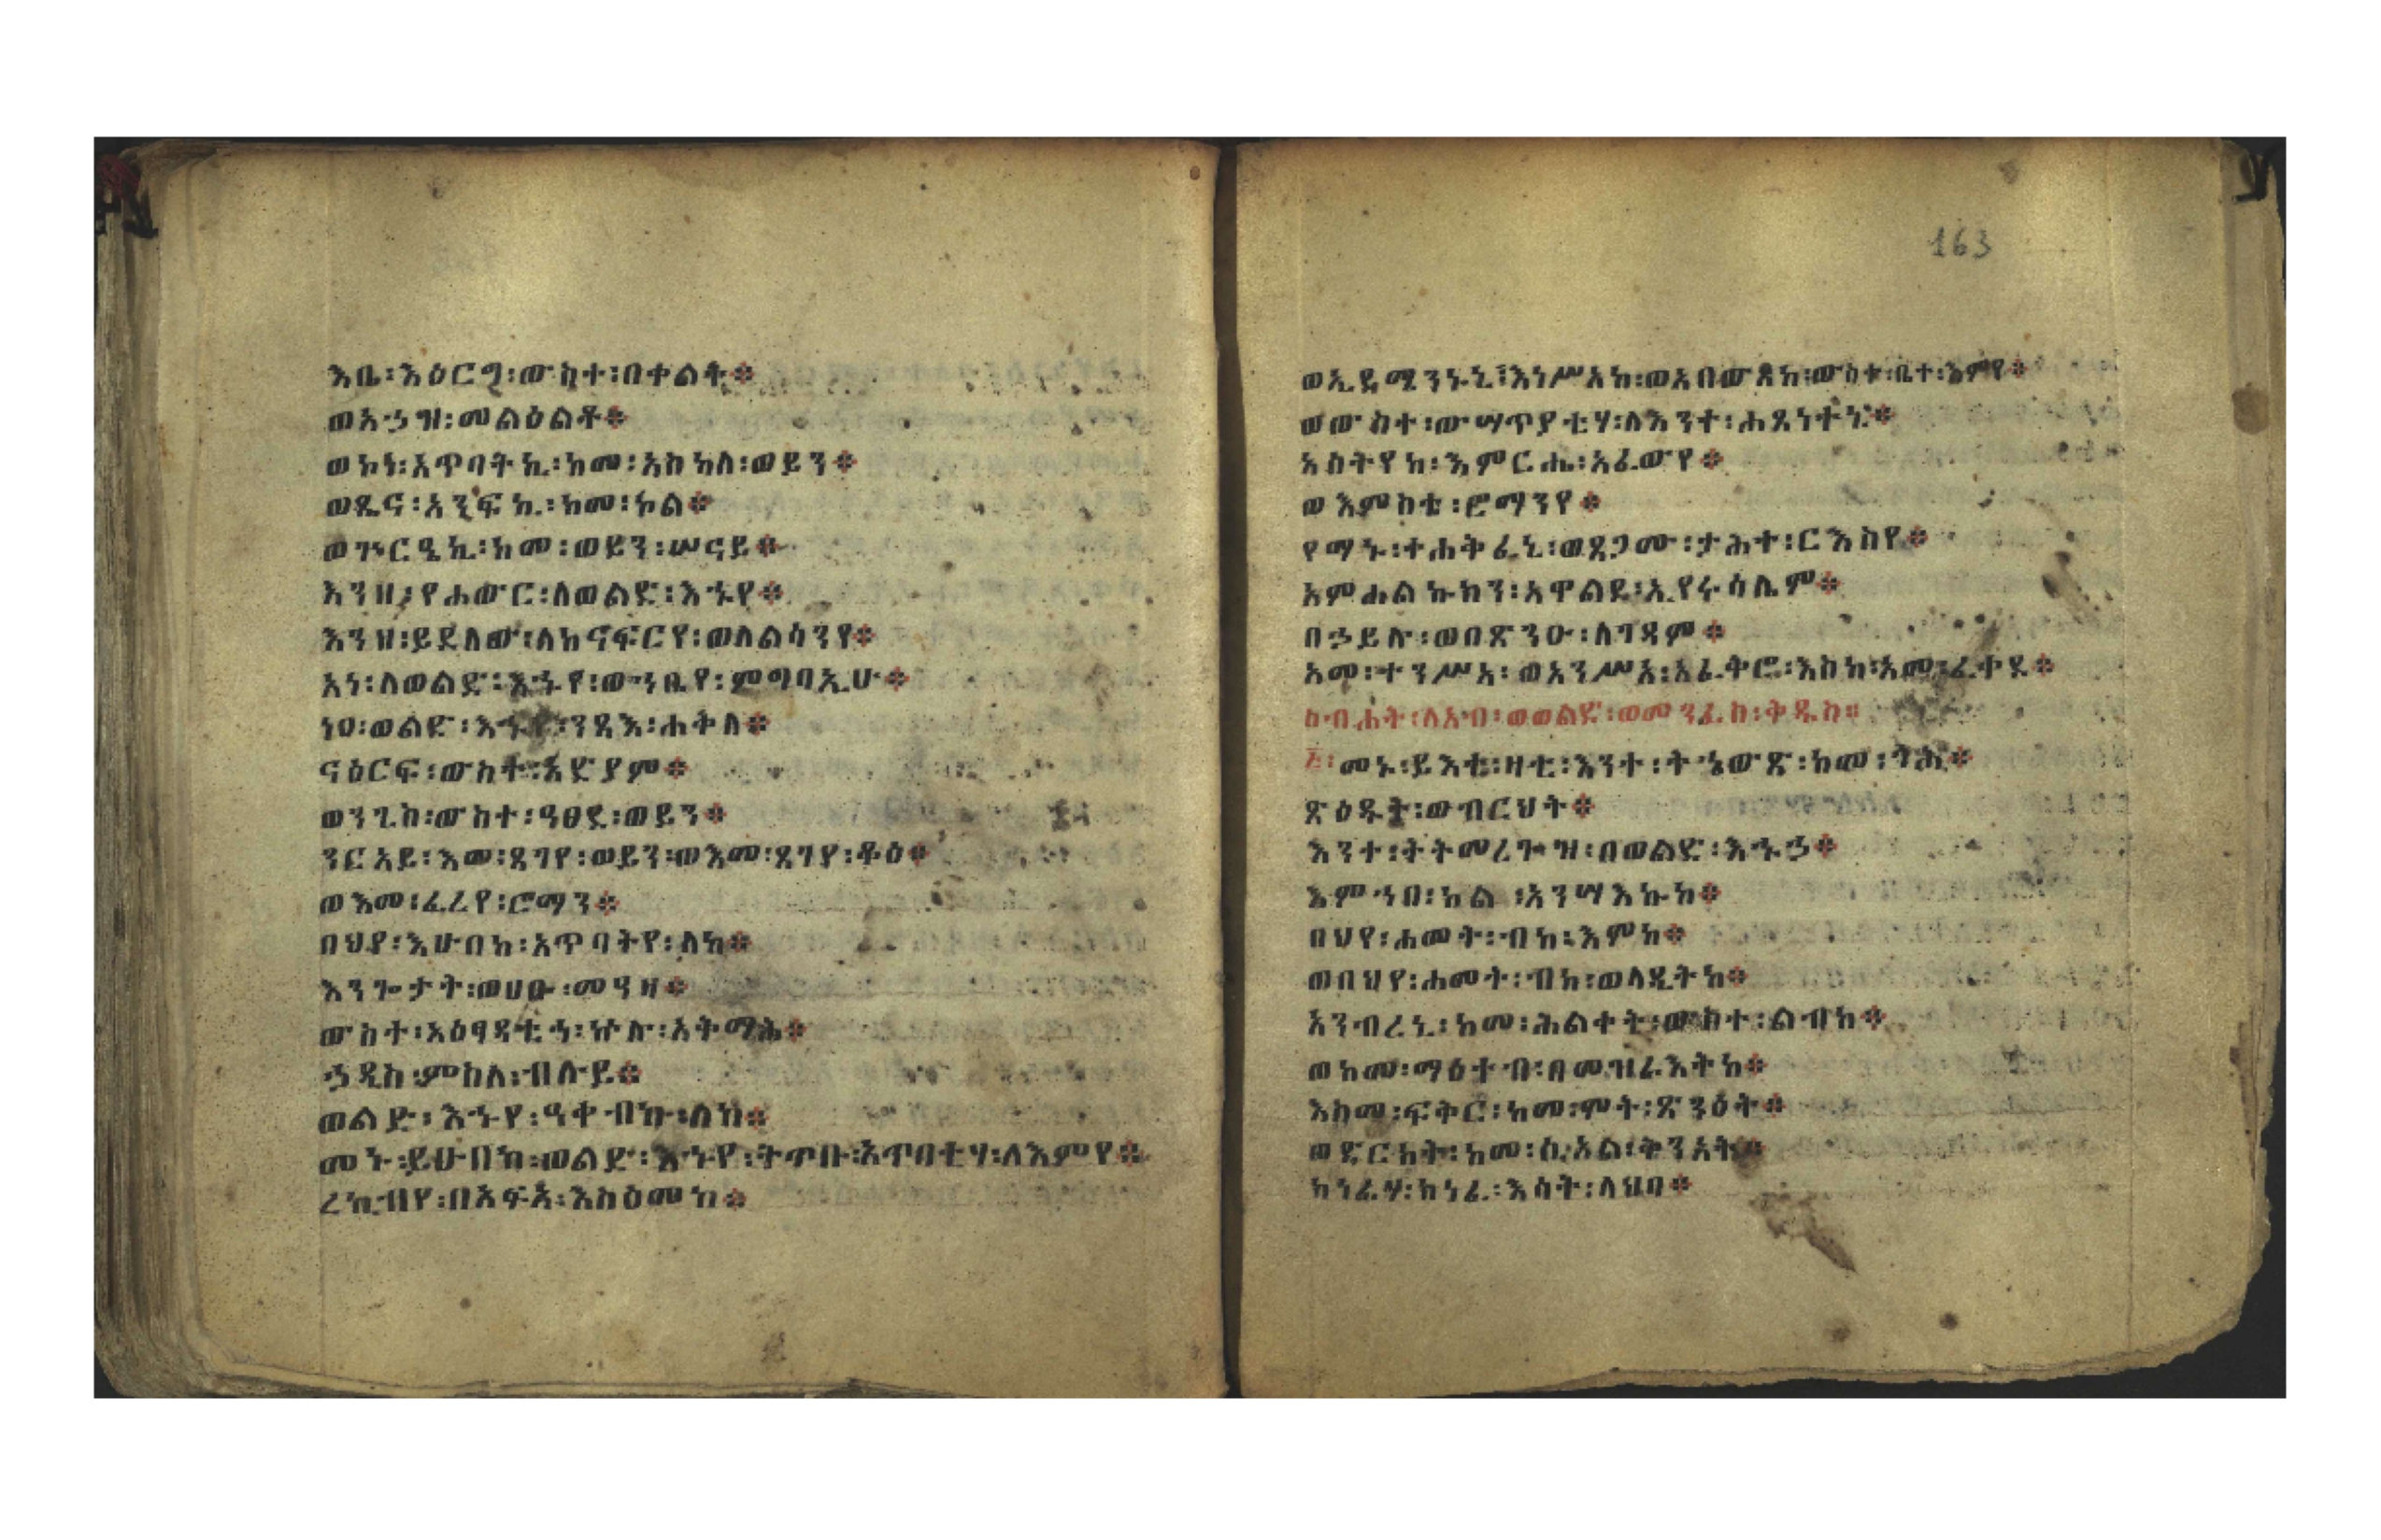 እቤ፡እዕርግ፡ውስተ፡በቀልት፨
ወእኅዝ፡መልዕልቶ፨
ወኮነ፡አጥባትኪ፡ከመ፡አስካለ፡ወይን፨
ወጼና፡አንፍኪ፡ከመ፡ኮል፨
ወጕርዔኪ፡ከመ፡ወይን፡ሠናይ፨
እንዘ፡የሐውር፡ለወልድ፡እኁየ፨
እንዘ፡ይደለው፡ለከናፍርየ፡ወለልሳንየ፨
አነ፡ለወልድ፡እኁየ፡ወኀቤየ፡ምግባኢሁ፨
ነዐ፡ወልድ፡እኁየ፡ንፃእ፡ሐቅለ፨
ናዕርፍ፡ውስተ፡አድያም፨
ወንጊስ፡ውስተ፡ዓፀደ፡ወይን፨
ንርአይ፡እመ፡ጸገየ፡ወይን፡ወእመ፡ጸገየ፡ቆዕ፨
ወእመ፡ፈረየ፡ሮማን፨
በህየ፡እሁበከ፡አጥባትየ፡ለከ፨
እንጎታት፡ወሀቡ፡መዓዛ፨
ውስተ፡አዕፃዳቲነ፡ኵሉ፡አቅማሕ፨
ኃዲስ፡ምስለ፡ብሉይ፨
ወልድ፡እኁየ፡ዓቀብኩ፡ለከ፨
መኑ፡ይሁበከ፡ወልድ፡እኁየ፡ትጥቡ፡አጥባቲሃ፡ለእምየ፨
ረኪብየ፡በአፍአ፡እስዕመከ፨
163
ወኢይሜንኑኒ፡እነሥአከ፡ወአበውጸከ፡ውስተ፡ቤተ፡እምየ፨
ወውስተ፡ውሣጥያቲሃ፡ለእንተ፡ሐፀነተኒ፨
አስትየከ፡እምርሔ፡አፈውየ፨
ወእምስቴ፡ሮማንየ፨
የማኑ፡ተሐቅፈኒ፡ወፀጋሙ፡ታሕተ፡ርእስየ፨
አምሐልኩክን፡አዋልደ፡ኢየሩሳሌም፨
በኃይሉ፡ወበጽንዑ፡ለገዳም፨
አመ፡ተንሥአ፡ወአንሥአ፡አፈቅሮ፡እስከ፡አመ፡ፈቀደ፨
ስብሐት፡ለአብ፡ወወልድ፡ወመንፈስ፡ቅዱስ፨
፭፡መኑ፡ይእቲ፡ዛቲ፡እንተ፡ትኄውጽ፡ከመ፡ጎሕ፨
ጽዕዱት፡ወብርህት፨
እንተ፡ትትመረጐዝ፡በወልድ፡እኁኃ፨
እምኀበ፡ኮል፡አንሣእኩከ፨
በህየ፡ሐመት፡ብከ፡እምከ፨
ወበህየ፡ሐመት፡ብከ፡ወላዲትከ፨
አንብረኒ፡ከመ፡ሕልቀት፡ውስተ፡ልብከ፨
ወከመ፡ማዕተብ፡በመዝራእትከ፨
እስመ፡ፍቅር፡ከመ፡ሞት፡ጽንዕት፨
ወድርከት፡ከመ፡ሲኦል፡ቅንአት፨
ክነፊሃ፡ክነፈ፡እሳት፡ላህባ፨